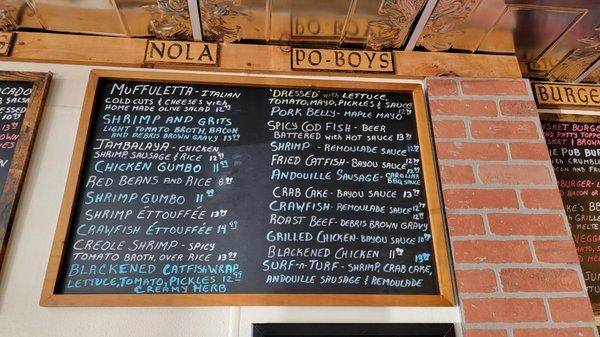 NOLA
PO-BOYS
BURGE
MUFFULETTA - ITALIAN
COLD CUTS & CHEESES WITH
HOME MADE OLIVE SALAD 12 99
SHRIMP AND GRITS
LIGHT TOMATO BROTH, BACON
AND DEBRIS BROWN GRAVY 13 99
JAMBALAYA - CHICKEN,
SHRIMP, SAUSAGE & RICE 12 99
CHICKEN GUMBO 11 99
RED BEANS AND RICE 8 99
SHRIMP GUMBO 11 99
SHRIMP ÉTTOUFFÉE 13 99
CRAWFISH ÉTTOUFFÉE 14 99
CREOLE SHRIMP - SPICY
TOMATO BROTH, OVER RICE 13 99
BLACKENED CATFISH WRAP
LETTUCE, TOMATO, PICKLES 12 99
CREAMY HERB
'DRESSED' WITH LETTUCE,
TOMATO, MAYO, PICKLES & SAUCE
PORK BELLY - MAPLE MAYO 12 99
SPICY COD FISH - BEER
BATTERED WITH HOT SAUCE 13 99
SHRIMP - REMOULADE SAUCE 12 99
FRIED CATFISH - BAYOU SAUCE 12 99
ANDOUILLE SAUSAGE - CAROLINA
BBQ SAUCE
CRAB CAKE - BAYOU SAUCE 13 99
CRAWFISH - REMOULADE SAUCE 12 99
ROAST BEEF - DEBRIS BROWN GRAVY
GRILLED CHICKEN - BAYOU SAUCE 10 99
BLACKENED CHICKEN 11 99
SURF-N-TURF - SHRIMP, CRAB CAKE,
ANDOUILLE SAUSAGE & REMOULADE